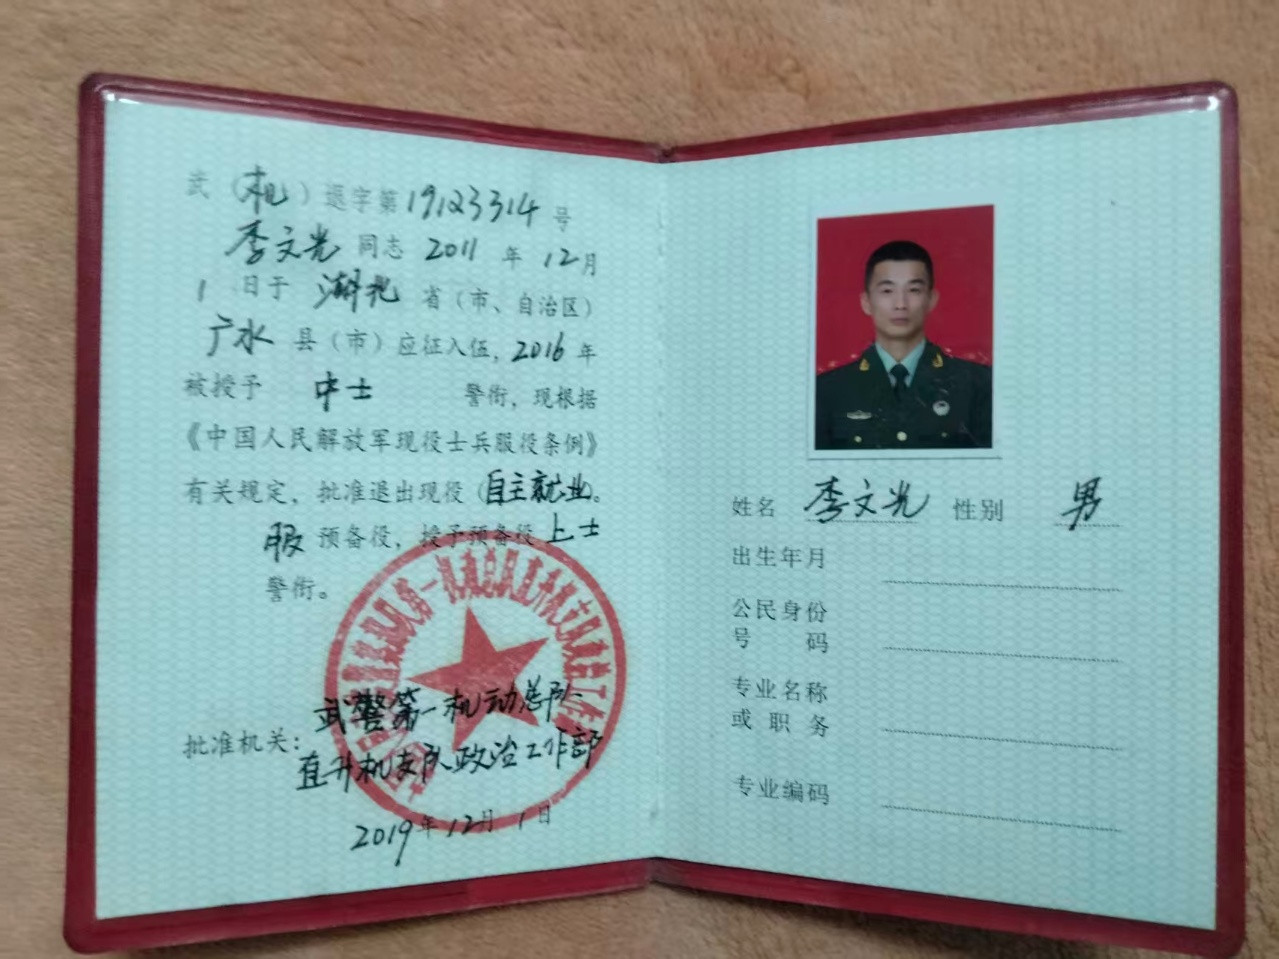 武（机）退字第19123314号
李文光同志2011年12月
1日于湖北省（市、自治区）
广水县（市）应征入伍，2016年
被授予 中士 警衔，现根据
《中国人民解放军现役士兵服役条例》
有关规定，批准退出现役（自主就业）。
服预备役，授予预备役上士
警衔。
批准机关：武警第一机动总队
直升机支队政治工作部
2019年12月1日
姓名 李文光 性别 男
出生年月
公民身份
号 码
专业名称
或 职 务
专业编码